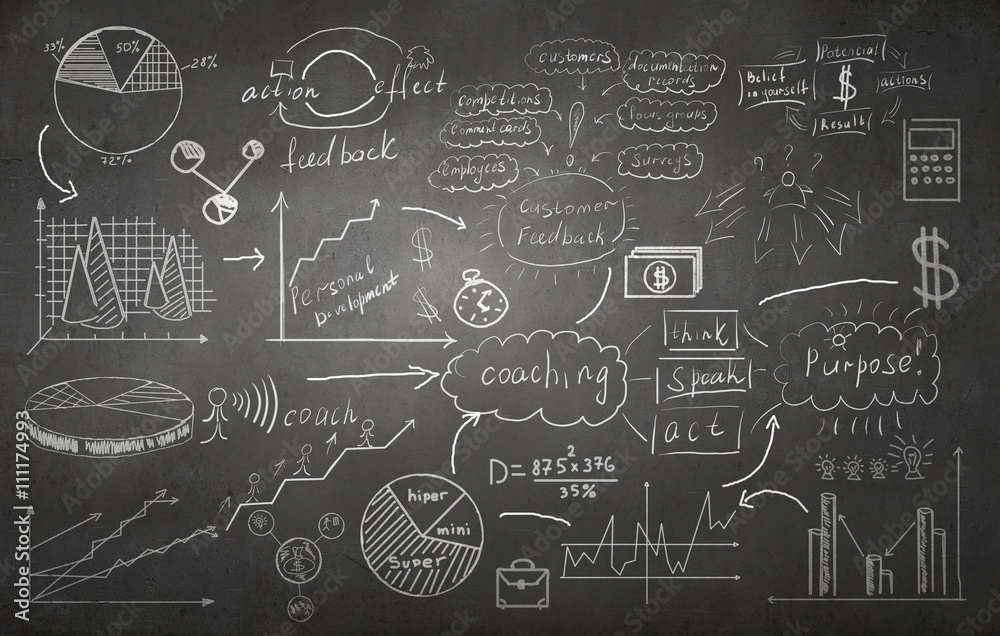 33%
50%
28%
72%
action effect
feedback
customers
documentation
records
competitions
Comment cards
focus groups
employees
Surveys
Customer
Feedback
Potencial
Belief
in yourself
$
actions
Result
Personal
Development
$
$
$
$
think
Speak
act
coaching
Purpose!
coach
D= 875² x 376
35%
hiper
mini
Super
$
Adobe Stock | #111174993